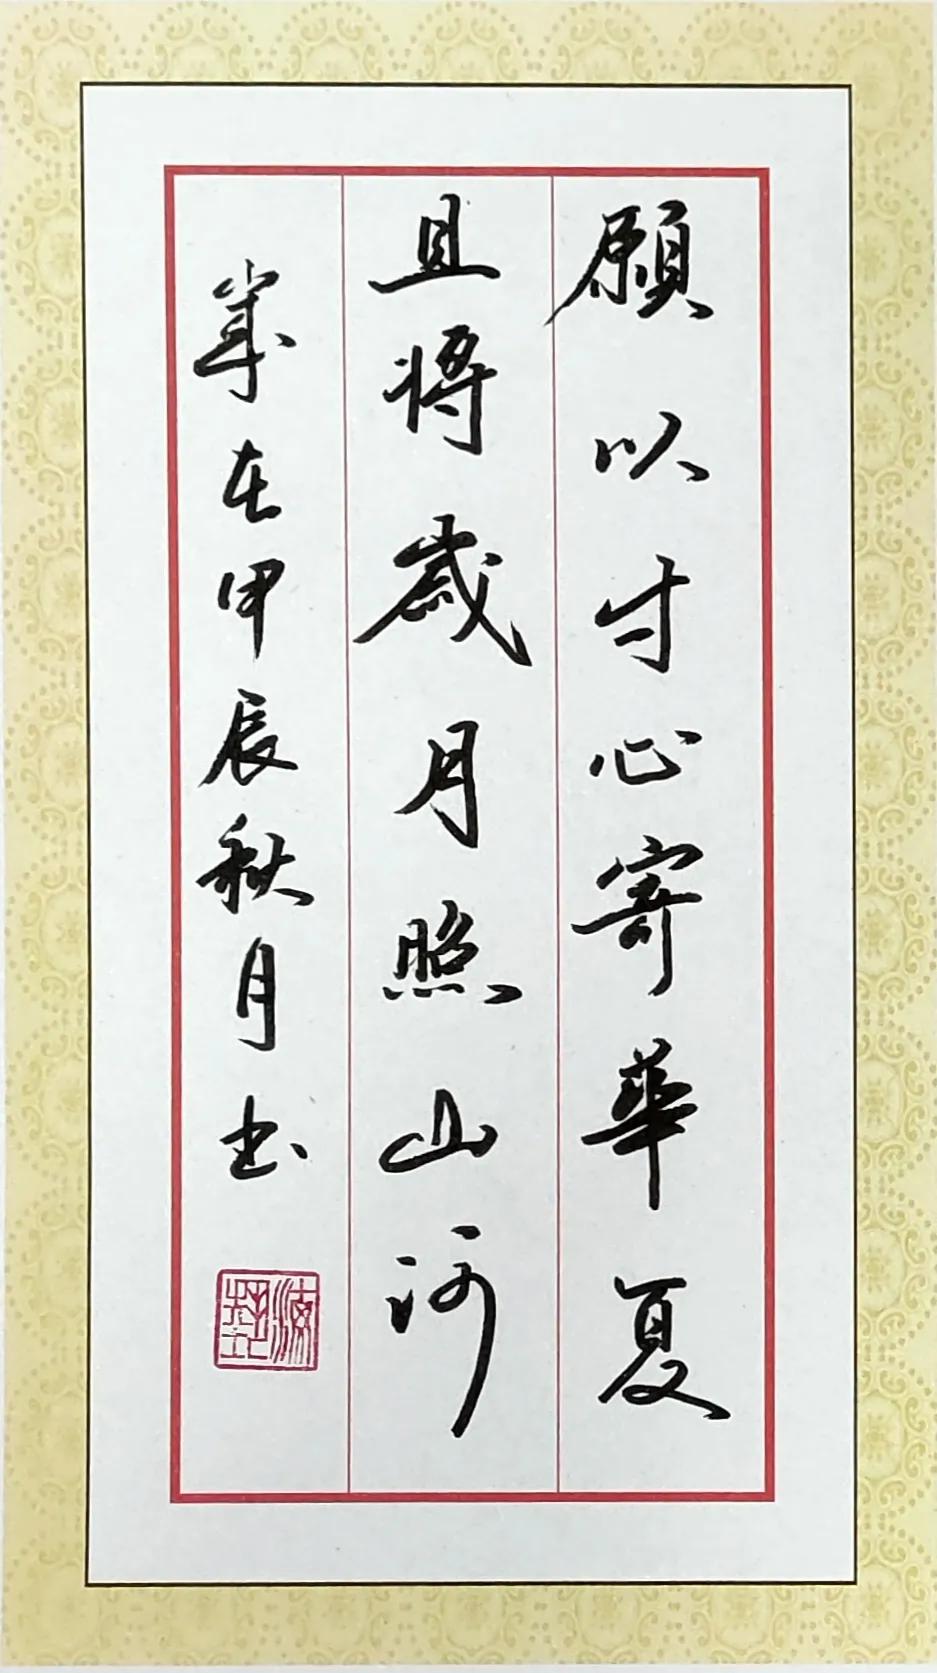 願以寸心寄華夏
且將歲月照山河
歲在甲辰秋月书